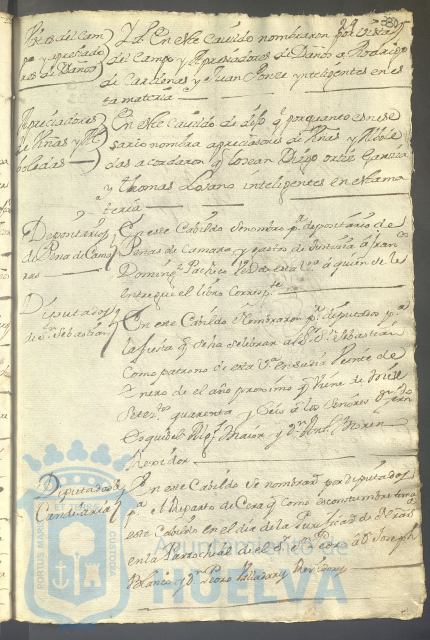 380
Vistas del Cam
po y apreciado
res de Daños
Yd. En este Cavildo nombraron por Vistas
del Campo y Apreciadores de Daños a Rodrigo
de Cardenas y Juan Ponze ynteligentes en es
ta materia
Apreciadores
de Viñas y Ar
boledas
En este Cavildo se dijo q. por quanto es nese
sario nombrar apreciadores de Viñas y Arbole
das acordaron q. lo sean Diego Ortiz Garcia
y Thomas Lozano inteligentes en esta ma
teria
Depositarios
de Pena de Cama
ras
En este Cabildo se nombro p. depositario de
Penas de Camara y gastos de Justicia a Fran.co
Doming.z Pacheco Vz.o de esta V.a a quien se le
entregue el libro Corresp.te
Diputados
de Sn. Sebastian
En este Cabildo Nombraron p. deputados p.a
la fiesta q. se ha celebrar a S.r Sn. Sebastian
como patrono de esta V.a en su dia Veinte de
Enero de el año proximo q. viene de mil se
Setez.tos quarenta y seis a los Señores Dn.
Alg.l Maior y Dn. Ant.o
Rexidor
Deputados de
Candelaria
En este Cabildo se nombrar.n por diputados
p.a el Reparto de Cera q. como es constumbre
este Cabildo en el dia de la Purificaz.n de Nra. Sra.
en la Parrochial de el S.r Sn. Pedro a Dn. Joseph
Blanco y Dn. Pedro Rexidores
PORTUS MARIS ET TERRAE CUSTODIA
Ayuntamiento de
HUELVA